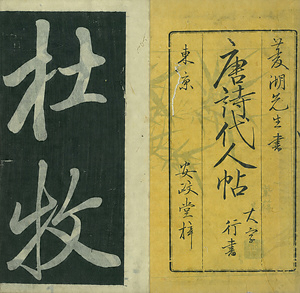 菱湖先生書
唐詩代人帖
大字
行書
東京
安政堂梓
杜牧